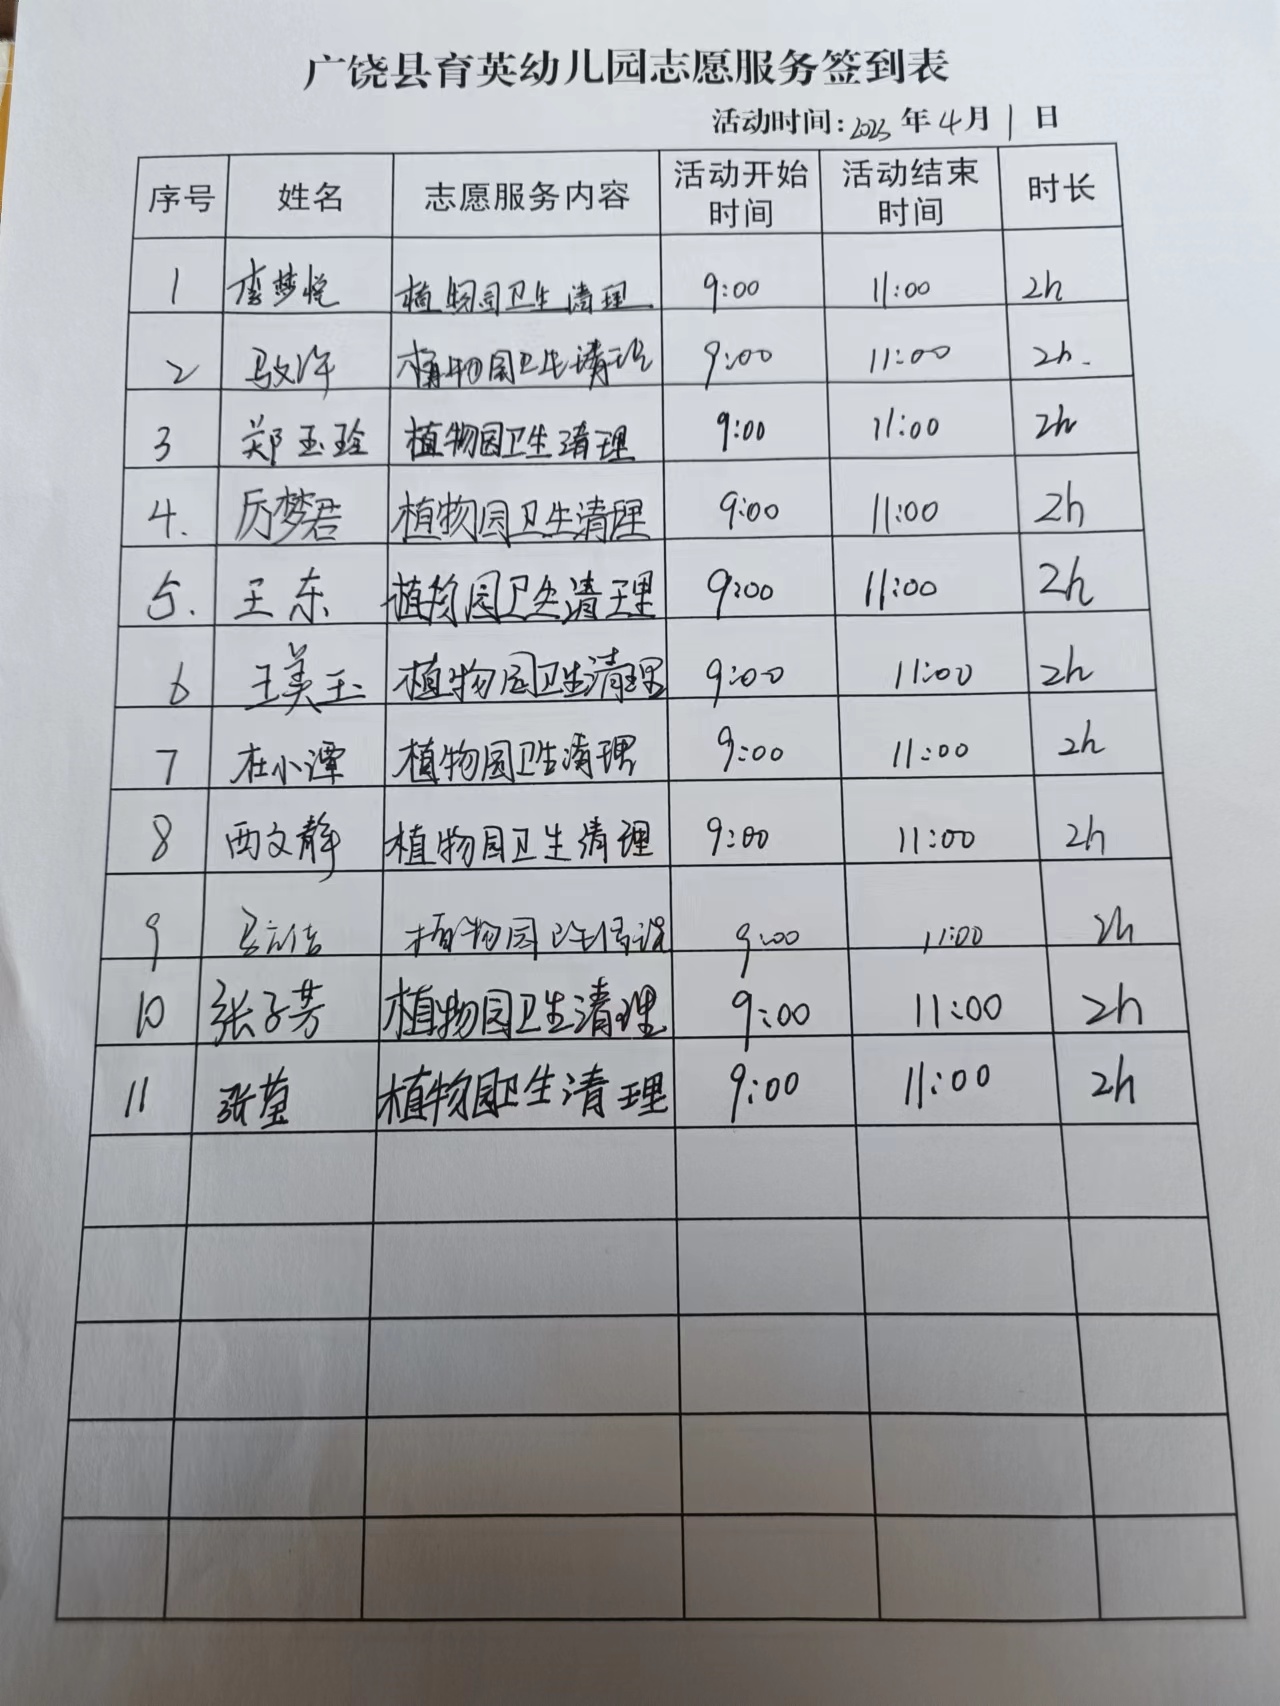 广饶县育英幼儿园志愿服务签到表
活动时间:2023年4月1日
序号 姓名 志愿服务内容 活动开始时间 活动结束时间 时长
1 李梦悦 植物园卫生清理 9:00 11:00 2h
2 马文许 植物园卫生清理 9:00 11:00 2h.
3 郑玉玲 植物园卫生清理 9:00 11:00 2h
4. 厉梦君 植物园卫生清理 9:00 11:00 2h
5. 王东 植物园卫生清理 9:00 11:00 2h
6 王美玉 植物园卫生清理 9:00 11:00 2h
7 杜小潭 植物园卫生清理 9:00 11:00 2h
8 西文静 植物园卫生清理 9:00 11:00 2h
9 植物园卫生清理 9:00 11:00 2h
10 张子芳 植物园卫生清理 9:00 11:00 2h
11 张莹 植物园卫生清理 9:00 11:00 2h